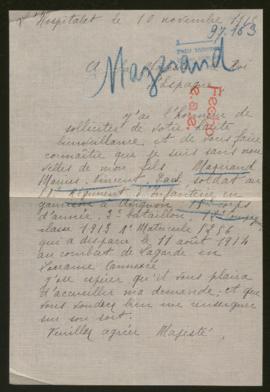 Hospitalet le 10 novembre
97.163
Mazerand
Espagne
J'ai l'honneur de
solliciter de votre haute
bienveillance et de vous faire
connaître que je suis sans nou
velles de mon fils Mazerand
Marius, Vincent, Paul, soldat au
Régiment d'infanterie en
garnison à Avignon 15e corps
d'armée, 2e bataillon,
classe 1913 n° Matricule 1756
qui a disparu le 11 août 1914
au combat de Lagarde en
Lorraine annexée
J'ose espérer qu'il vous plaira
d'accueillir ma demande et que
vous voudrez bien me renseigner
sur son sort.
Veuillez agréer Majesté